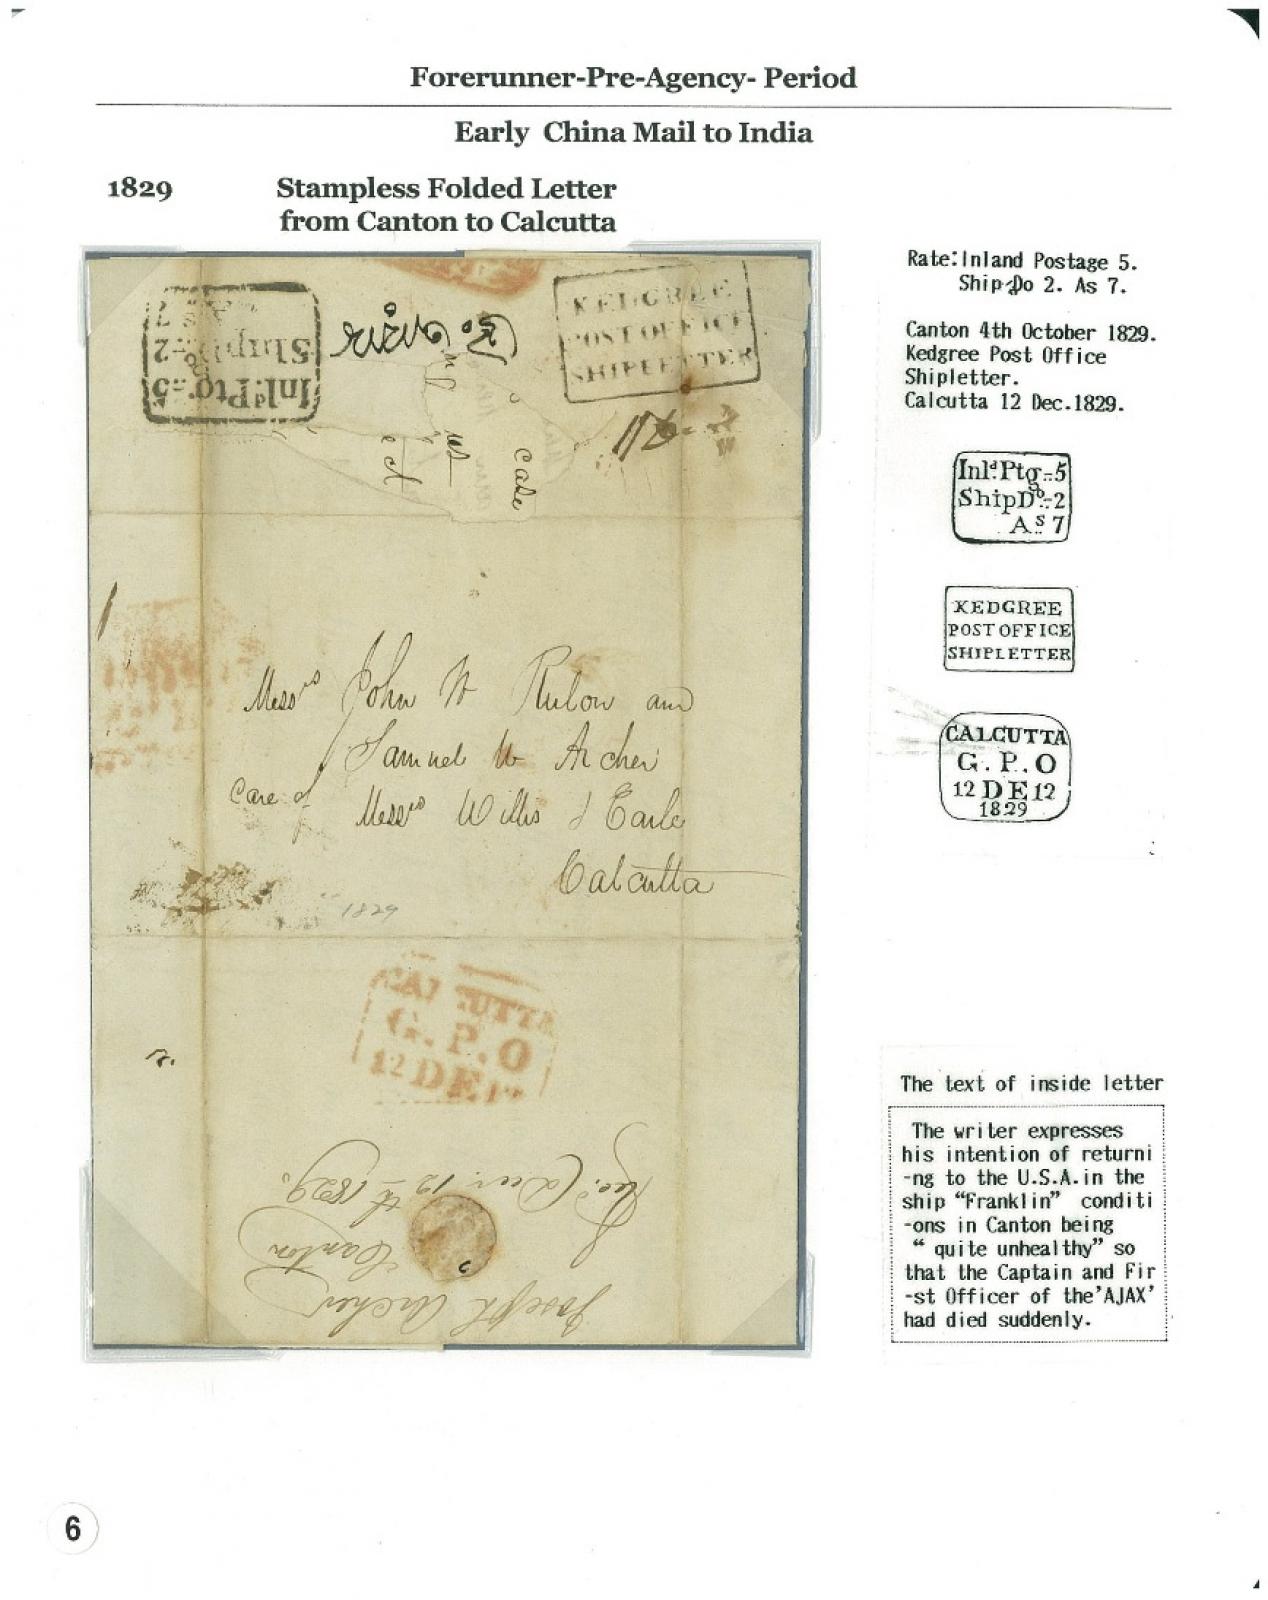 Forerunner-Pre-Agency- Period
Early China Mail to India
1829 Stampless Folded Letter
from Canton to Calcutta
Rate:Inland Postage 5.
Ship-Do 2. As 7.
Canton 4th October 1829.
Kedgree Post Office
Shipletter.
Calcutta 12 Dec.1829.
Inlᵈ. Ptg.=5
Ship Dº.=2
Aˢ 7
KEDGREE
POST OFFICE
SHIPLETTER
CALCUTTA
G. P. O
12 DE 12
1829
Inlᵈ. Ptg.=5
Ship Dº.=2
7
KEDGREE
POST OFFICE
SHIPLETTER
case
us
Messʳˢ John W Rulon and
Samuel W Archer
Care of Messʳˢ Willis & Earle
Calcutta
1829
CALCUTTA
G. P. O
12 DE 12
Joseph Archer
Canton
Rec.ᵈ Decr. 12th 1829.
The text of inside letter
The writer expresses
his intention of returni
-ng to the U.S.A.in the
ship “Franklin” conditi
-ons in Canton being
“ quite unhealthy” so
that the Captain and Fir
-st Officer of the’AJAX’
had died suddenly.
6